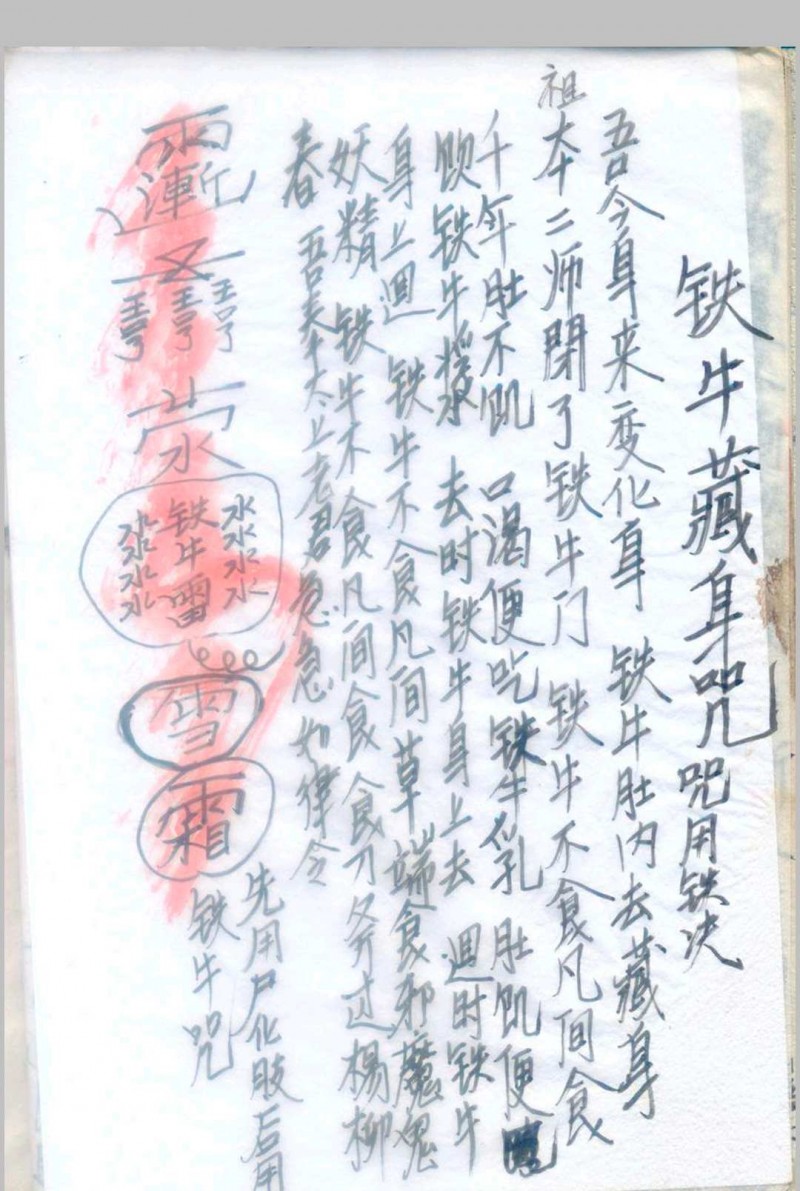 铁牛藏身咒 咒用铁决
吾今身来变化身 铁牛肚内去藏身
祖本十二师閉了铁牛门 铁牛不食凡间食
千年肚不飢 口渴便吃铁牛乳 肚飢便
铁牛 去时铁牛身上去 迴时铁牛
身上迴 铁牛不食凡间草 端食邪魔鬼
妖精 铁牛不食凡间食 食刀斧过楊柳
春 吾奉太上老君急急如律令
先用尸化 后用
铁牛咒
水水水水
铁牛雷
水水水水
雪
霜